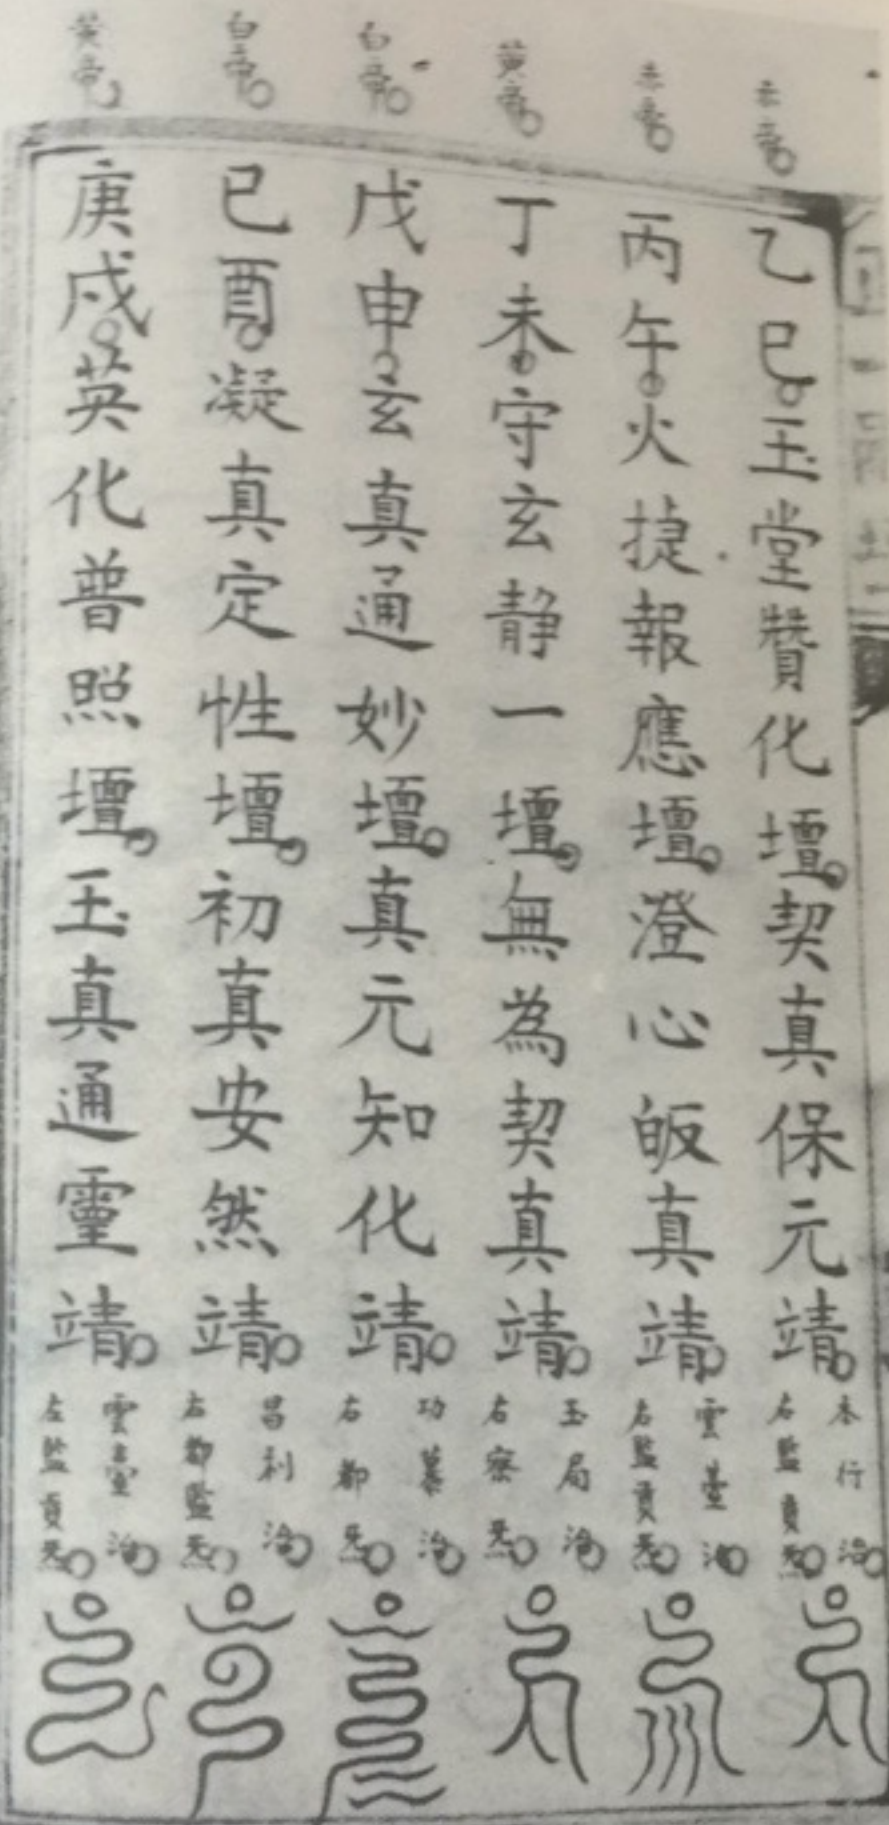 赤帝
乙巳玉堂贊化壇契真保元靖
本行治
右監貢炁
赤帝
丙午火捷報應壇澄心皈真靖
雲臺治
右監貢炁
黃帝
丁未守玄静一壇無為契真靖
玉局治
右察炁
白帝
戊申玄真通妙壇真元知化靖
功墓治
右都炁
白帝
已酉凝真定性壇初真安然靖
昌利治
右都監炁
黃帝
庚戍英化普照壇玉真通靈靖
雲臺治
左監貢炁